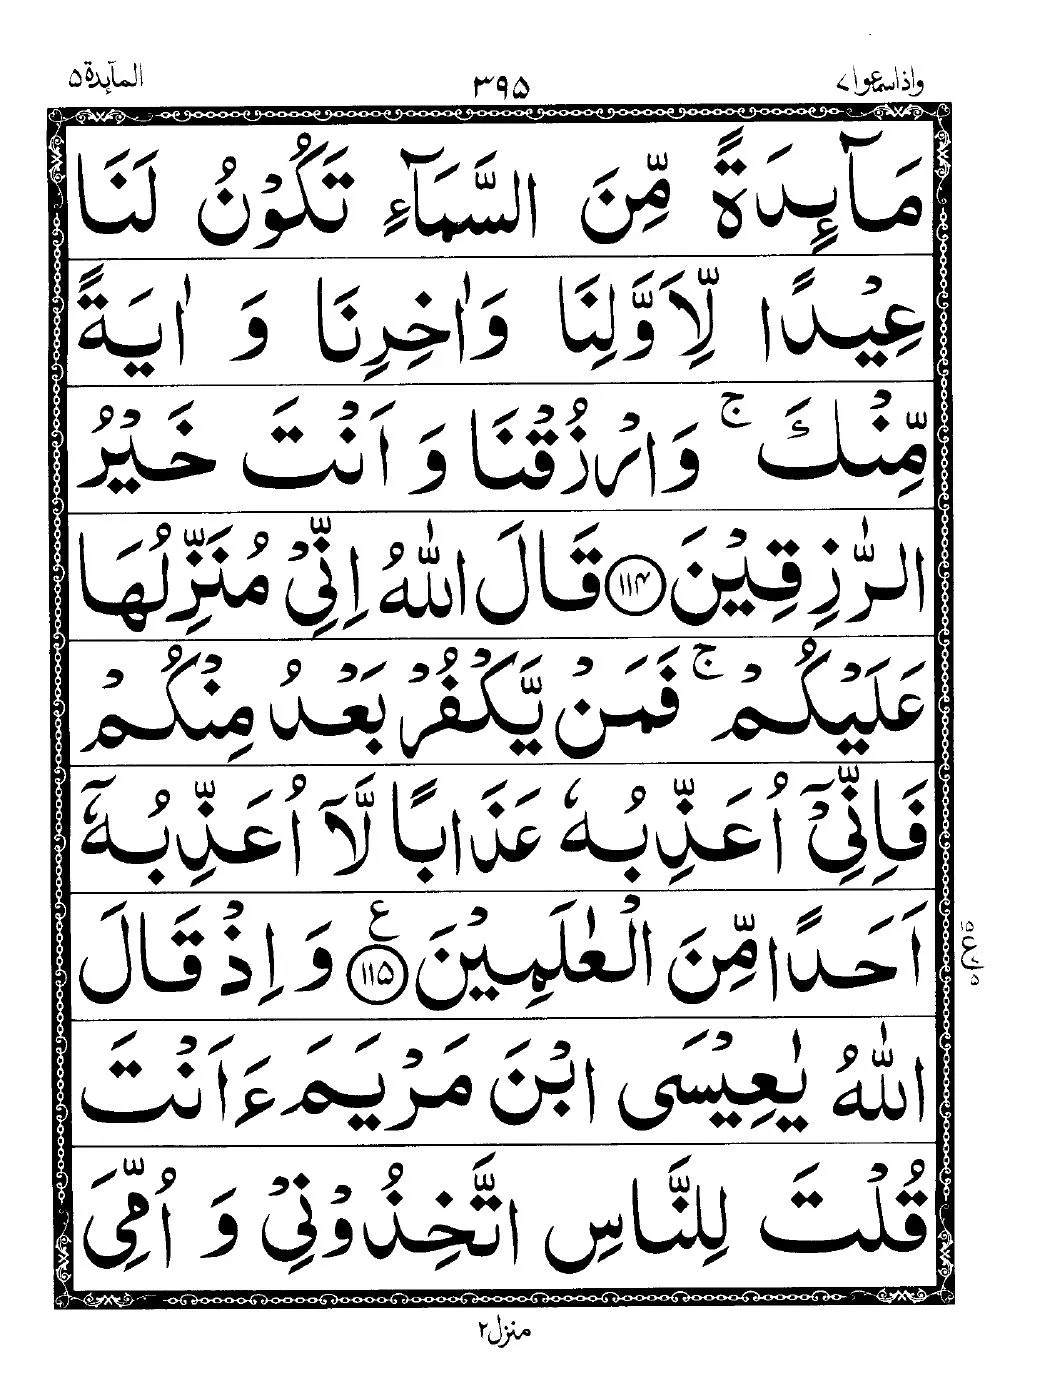 واذاسمعوا۷ ۳۹۵ المآىِٕدة۵
مَآىِٕدَةً مِّنَ السَّمَآءِ تَكُوْنُ لَنَا
عِیْدًا لِّاَوَّلِنَا وَاٰخِرِنَا وَ اٰیَةً
مِّنْكَ ۚ وَارْزُقْنَا وَ اَنْتَ خَیْرُ
الرّٰزِقِیْنَ ۱۱۴ قَالَ اللّٰهُ اِنِّیْ مُنَزِّلُهَا
عَلَیْكُمْ ۚ فَمَنْ یَّكْفُرْ بَعْدُ مِنْكُمْ
فَاِنِّیْۤ اُعَذِّبُهٗ عَذَابًا لَّاۤ اُعَذِّبُهٗۤ
اَحَدًا مِّنَ الْعٰلَمِیْنَ ۱۱۵ ع وَ اِذْ قَالَ
اللّٰهُ یٰعِیْسَی ابْنَ مَرْیَمَ ءَاَنْتَ
قُلْتَ لِلنَّاسِ اتَّخِذُوْنِیْ وَ اُمِّیَ
منزل۲